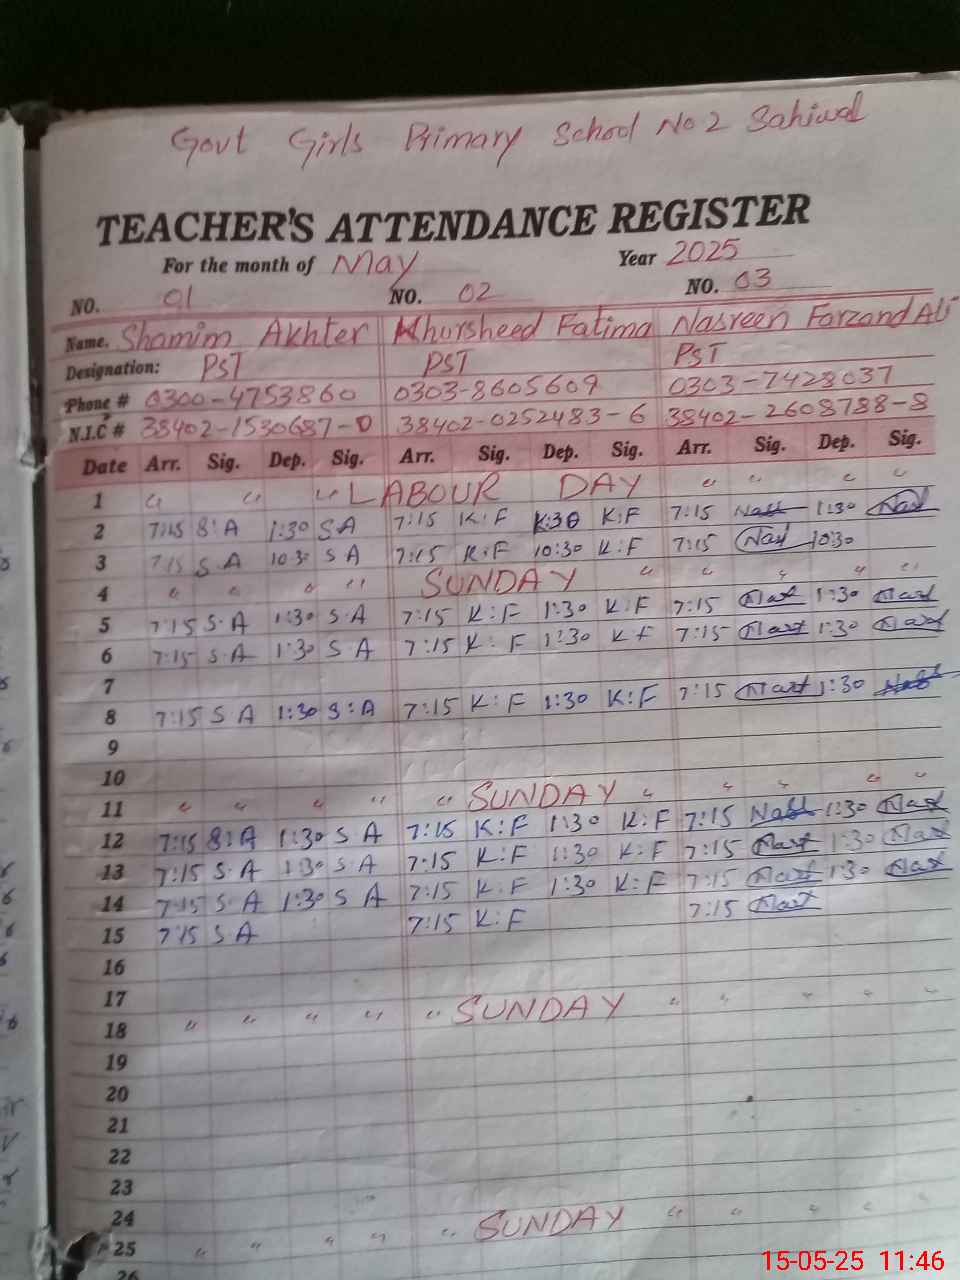 Govt Girls Primary School No 2 Sahiwal
TEACHER'S ATTENDANCE REGISTER
For the month of May Year 2025
NO. 01 NO. 02 NO. 03
Name. Shamim Akhter Khursheed Fatima Nasreen Farzand Ali
Designation: PST PST PST
Phone # 0300-4753860 0303-8605609 0303-7428037
N.I.C # 38402-1530687-0 38402-0252483-6 38402-2608788-8
Date Arr. Sig. Dep. Sig. Arr. Sig. Dep. Sig. Arr. Sig. Dep. Sig.
1 " " " LABOUR DAY " " " "
2 7:15 S:A 1:30 S A 7:15 K:F 1:30 K:F 7:15 1:30
3 7:15 S A 10:30 S A 7:15 K:F 10:30 K:F 7:15 10:30
4 " " " " SUNDAY " " " " "
5 7:15 S.A 1:30 S.A 7:15 K:F 1:30 K:F 7:15 1:30
6 7:15 S.A 1:30 S A 7:15 K:F 1:30 K F 7:15 1:30
7
8 7:15 S A 1:30 S:A 7:15 K:F 1:30 K:F 7:15 1:30
9
10
11 " " " " " SUNDAY " " " " "
12 7:15 S:A 1:30 S A 7:15 K:F 1:30 K:F 7:15 1:30
13 7:15 S.A 1:30 S A 7:15 K:F 1:30 K:F 7:15 1:30
14 7:15 S.A 1:30 S A 7:15 K:F 1:30 K:F 7:15 1:30
15 7:15 S A 7:15 K:F 7:15
16
17
18 " " " " " SUNDAY " " " " "
19
20
21
22
23
24
25 " " " " " SUNDAY " " " " "
26
15-05-25 11:46